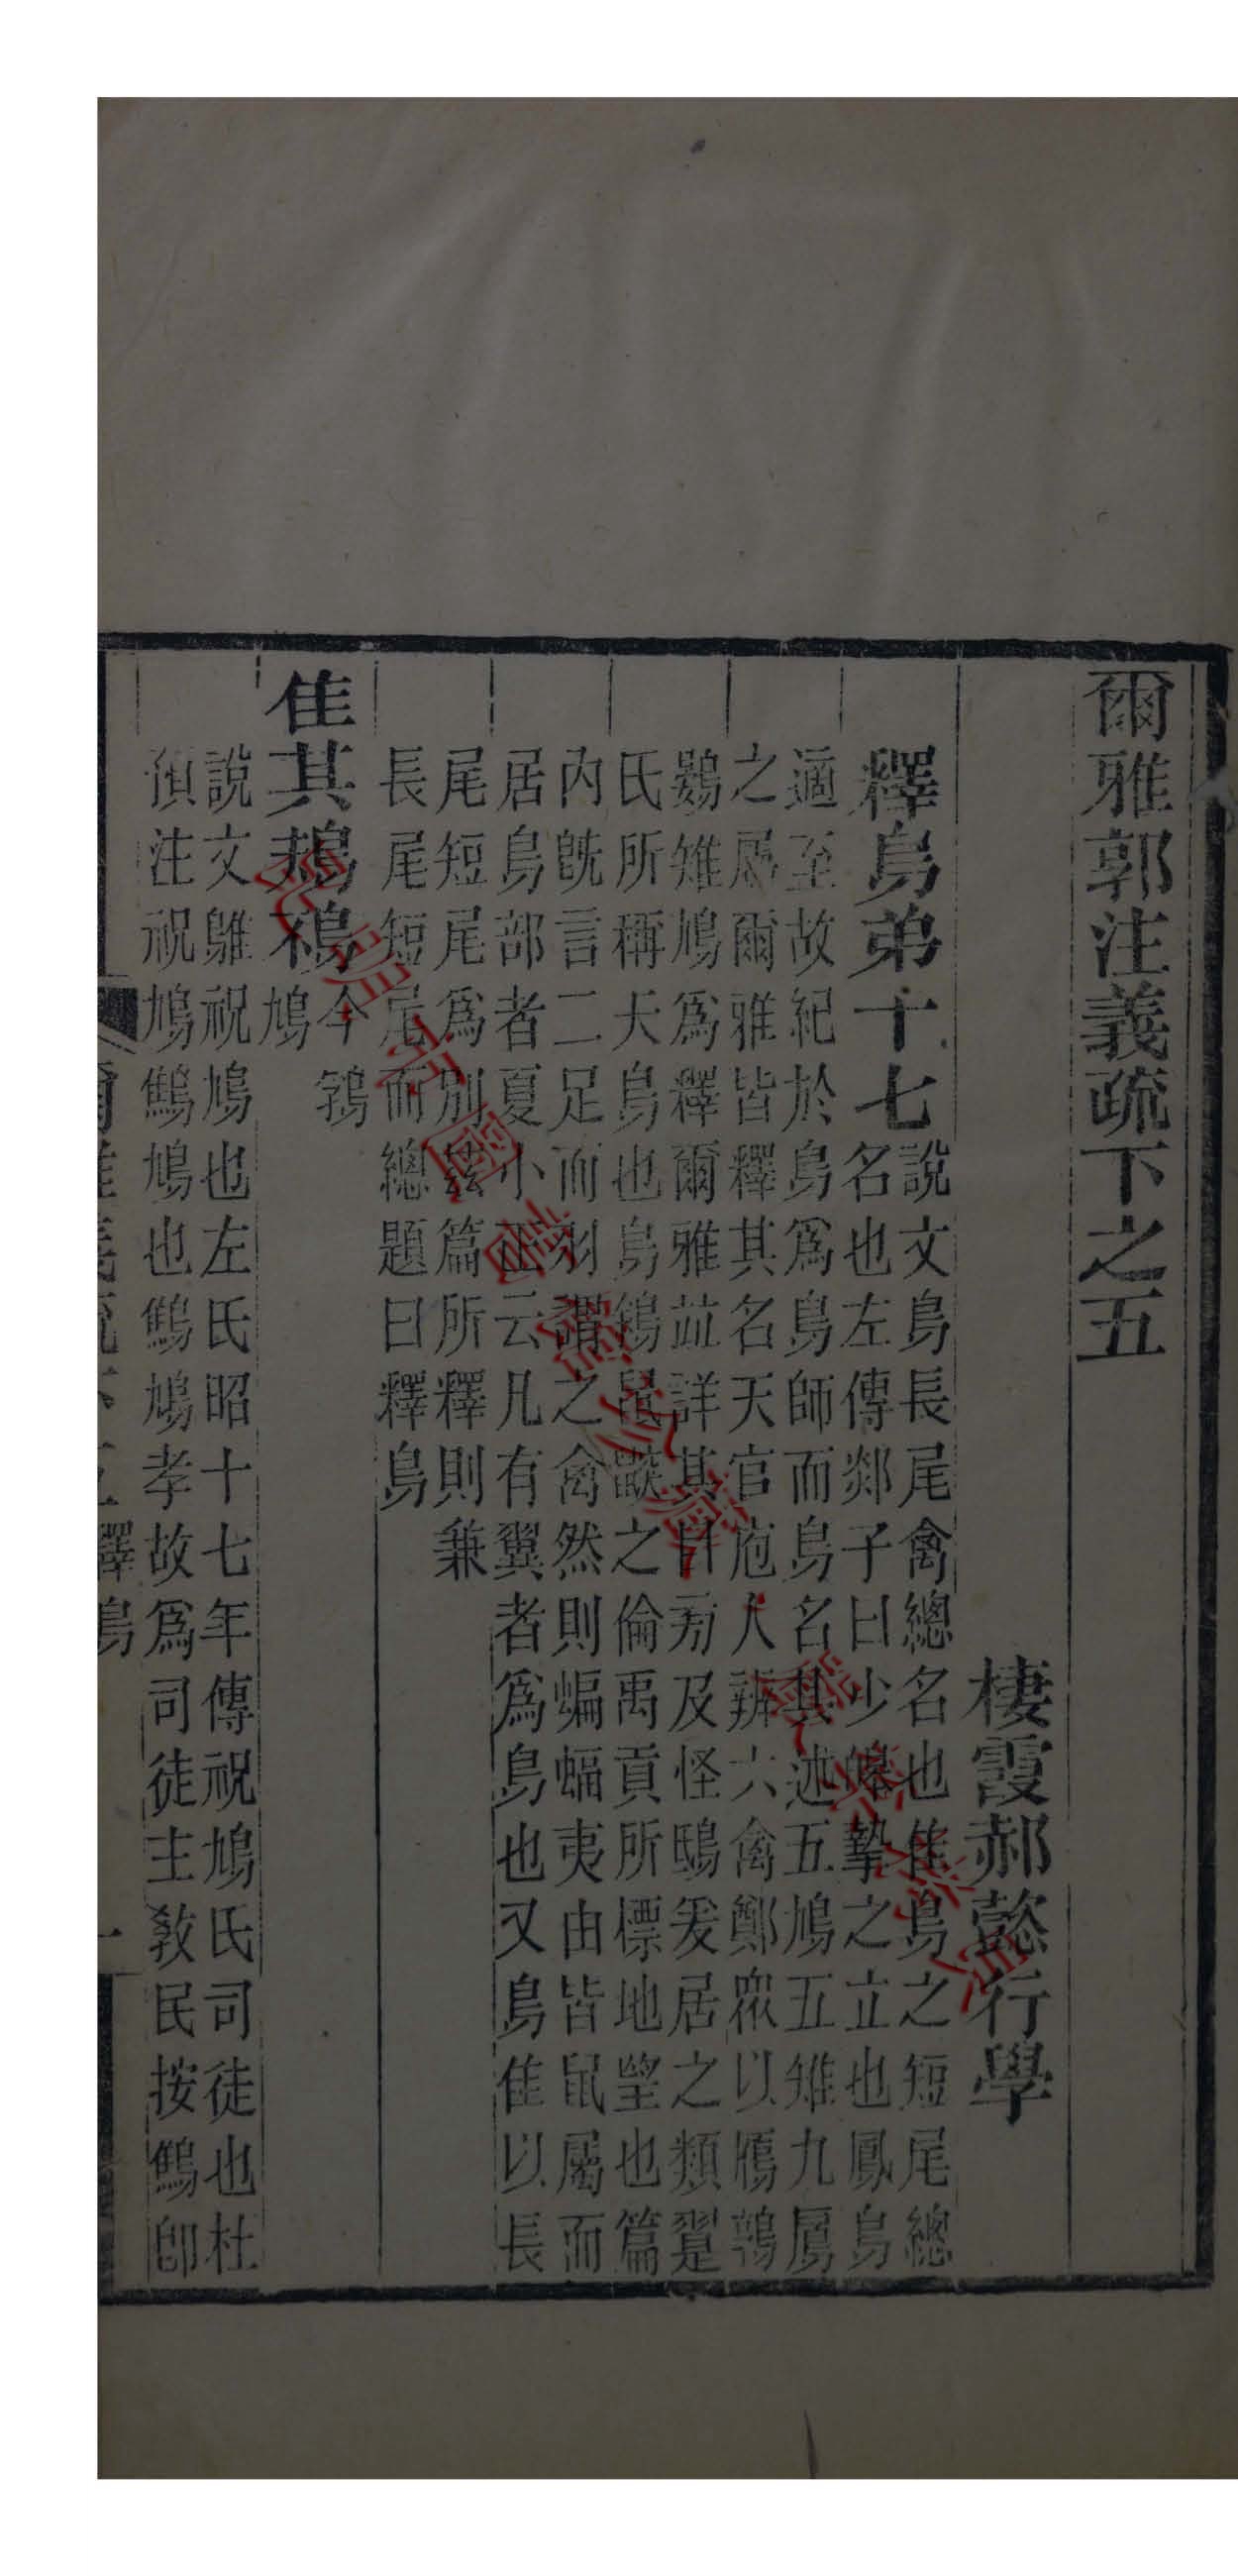 爾雅郭注義疏下之五
棲霞郝懿行學
釋鳥弟十七
說文鳥長尾禽總名也隹鳥之短尾總
名也左傳郯子曰少皞摯之立也鳳鳥
適至故紀於鳥爲鳥師而鳥名其述五鳩五雉九鳸
之屬爾雅皆釋其名天官庖人辨六禽鄭眾以鴈鶉
鷃雉鳩爲釋爾雅竝詳其目𠕎及怪鴟爰居之類翟
氏所稱天鳥也鳥鵌鼠鼵之倫禹貢所標地望也篇
內旣言二足而羽謂之禽然則蝙蝠夷由皆鼠屬而
居鳥部者夏小正云凡有翼者爲鳥也又鳥隹以長
尾短尾爲別茲篇所釋則兼
長尾短尾而總題曰釋鳥
隹其鳺鴀
今䳕
鳩
說文鵻祝鳩也左氏昭十七年傳祝鳩氏司徒也杜
預注祝鳩鷦鳩也鷦鳩孝故爲司徒主敎民按鷦卽
爾雅義疏下之五釋鳥
一